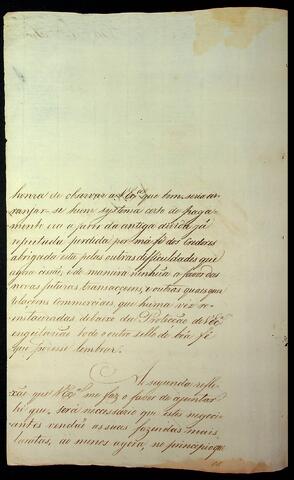 honra de observar a V Exª que tem, seria ar-
ranjar-se hum systema certo de paga-
mento era a favor da antiga divida já
reputada perdida por má fé dos Credores
abrigada esta pelas outras difficuldades que
agora cessão, e de maneira nenhũa a favor das
novas futuras transacçoens, e outras quaesquer
relaçoens Commerciaes, que huma vez
debaixo da Protecção de V Exª
todo o outro sello de boa fé
que podesse lembrar.
A segunda refle-
xão que V Exª me faz o favor de apontar
he que, será necessario que estes negoci-
antes vendão as suas fazendas mais
baratas, ao menos agora, no principio